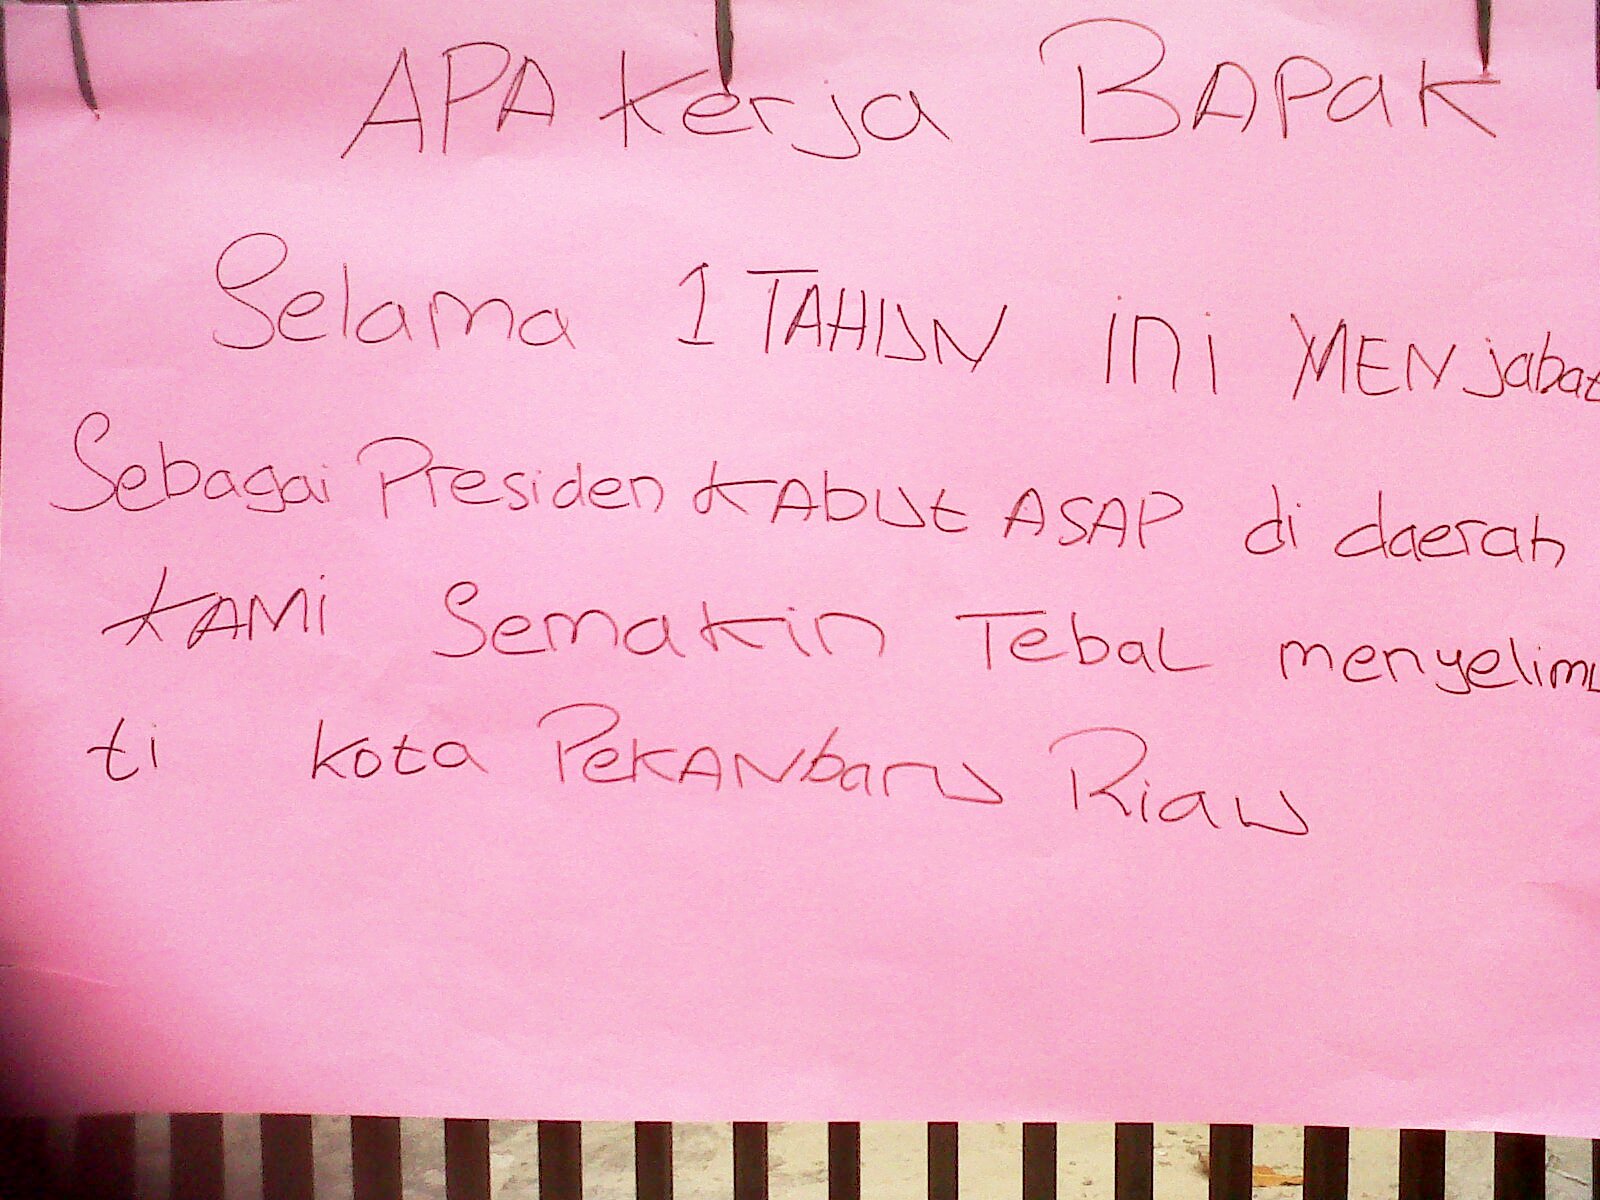 APA Kerja BAPak
Selama 1 TAHUN ini MENjabat
Sebagai Presiden KAbut ASAP di daerah
KAMi Semakin TebaL menyelimu
ti kota PeKANbaru Riau